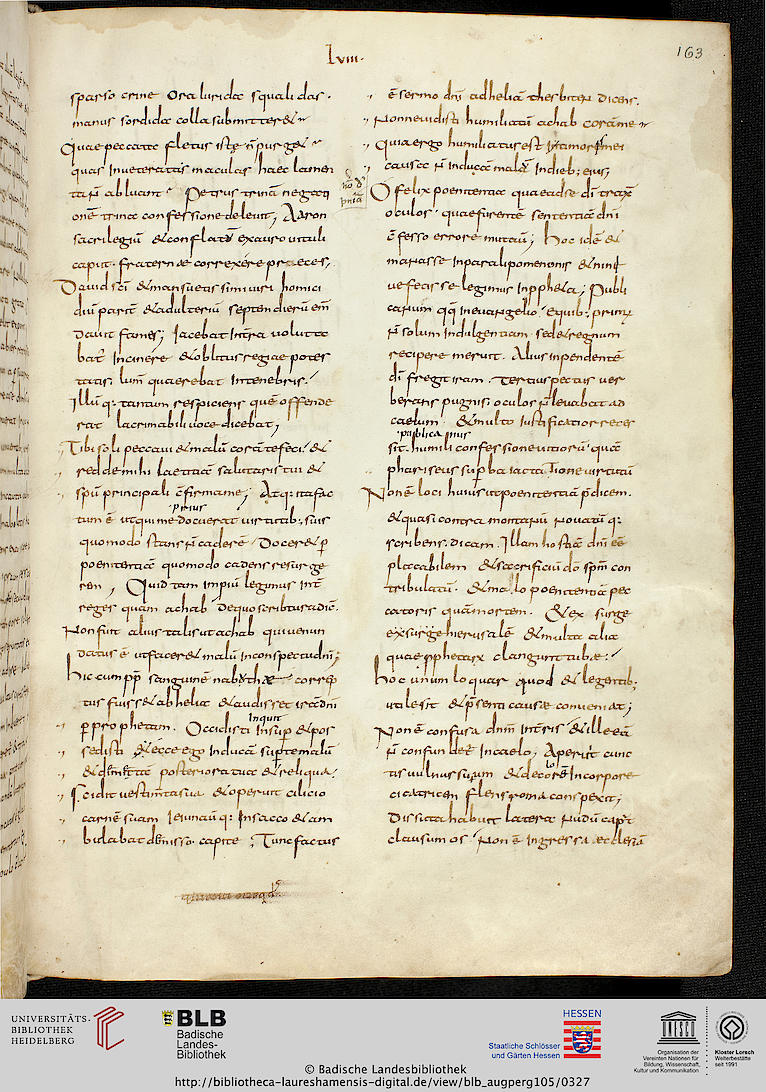 Lviii.
163
sparso crine ora lurida squalidas.
manus sordida colla submitteret
Quae peccata fletus iste ñ purget
quas inueteratas maculas haec lamen
ta ñ abluant. Petrus trinā negati
onē trina confessione deleuit; Aaron
sacrilegiū & conflatū ex auro uituli
caput. fraternae correxere preces;
Dauid scī & mansuetissimi uiri homici
diū parit̄ & adulteriū septem dierū em̄
dauit fames; Iacebat in t̄ra uoluta
bat̄ in cinere & oblitus regiae potes
tatis. lum̄ quaerebat in tenebris.
Illū q: tantum respiciens quē offende
rat lacrimabili uoce dicebat;
Tibi soli peccaui & malū corā te feci. &
redde mihi laetitiā salutaris tui &
spū principali cfirma me; Atq: ita fac
tum ē ut qui me docuerat uirtutib; suis
prius
quomodo stans ñ caderē. Docer& p
poenitentiā quomodo cadens resurge
rem; Quid tam impiū legimus int̄
reges quam achab de quo scriptura dic̄.
Non fuit alius talis ut achab qui uenun
datus ē ut facer& malū in conspectu dn̄i;
hic cum pp̄ sanguinē nabuthae correp
tus fuiss& ab helia & audiss& irā dn̄i
p proph&am. Occidisti insup & pos
inquit
sedisti & ecce ego inducā sup te malū
& demetā posteriora tua & reliqua;
Scidit uestim̄ta sua & operuit cilicio
carnē suam Ieiunau q: in sacco & am
bulabat demisso capite; Tunc factus
ē sermo dn̄i ad heliā thesbiten dicens.
Nonne uidisti humiliatū achab corā me
Quia ergo humiliatus est
causa ñ inducā malū in dieb; eius;
O felix poenitentia quae ad se dī traxit
oculos. quae furentē sententiā dn̄i
c̄fesso errore mutauit; hoc idē &
manasse in paralipomenonis & niniuē
ue fecisse legimus in ppheta; Publi
canum qq: in euangelio. e quib; primus
ñ solum indulgentiam. sed & regnum
recipere meruit. Alius inpendentē
dī fregit iram. Tertius pectus uer
berans pugnis. oculos ñ leuabat ad
caelum. & multo iustificatior reces
publicanus
sit. humili confessione uitiorū quā
phariseus supba iactatione uirtutū
Non ē loci huius ut poenitentiā p̄dicem.
& quasi contra montanū nouatū q:
scribens. dicam. Illam hostiā dn̄i eē
placabilem & sacrificiū dō spm̄ con
tribulatū. & malo poenitentiā pec
catoris quam mortem. & ex surge
exsurge hierusalē & multa alia
quae pphetarū clangunt tubae.
hoc unum loquar quod & legentib;
utile sit & p̄senti causae conueniat;
Non ē confusa dnm in t̄ris & ille eā
ñ confundet in caelo; Aperuit cunc
tis uulnus suum & decolorē in corpore
cicatricem flens roma conspexit;
Dissuta habuit latera nudū caput
clausum os. Non ē ingressa ecclesiā
UNIVERSITÄTS-
BIBLIOTHEK
HEIDELBERG
BLB
Badische
Landes-
Bibliothek
HESSEN
Staatliche Schlösser
und Gärten Hessen
UNESCO
Organisation der
Vereinten Nationen für
Bildung, Wissenschaft,
Kultur und Kommunikation
Kloster Lorsch
Welterbestätte
seit 1991
© Badische Landesbibliothek
http://bibliotheca-laureshamensis-digital.de/view/blb_augperg105/0327